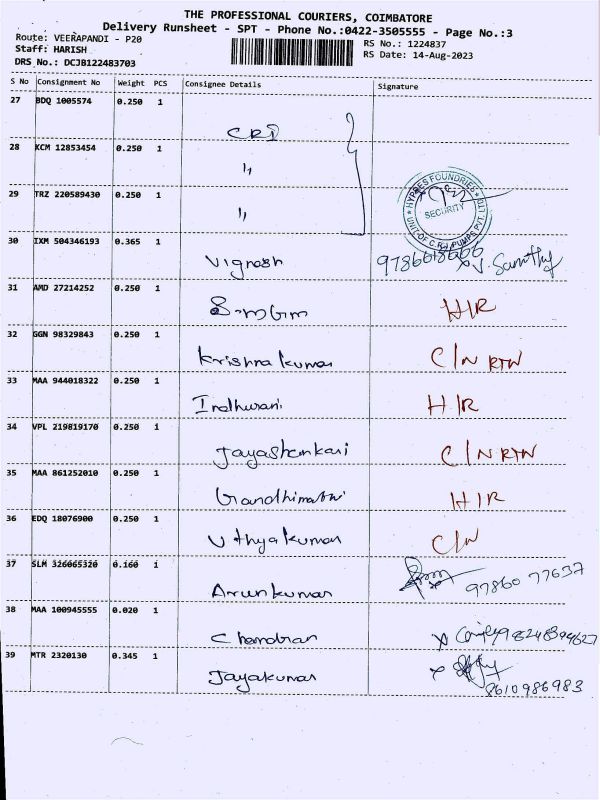 THE PROFESSIONAL COURIERS, COIMBATORE
Delivery Runsheet - SPT - Phone No.:0422-3505555 - Page No.:3
Route: VEERAPANDI - P20
RS No.: 1224837
Staff: HARISH
RS Date: 14-Aug-2023
DRS No.: DCJB122483703
S No Consignment No Weight PCS Consignee Details Signature
27 BDQ 1005574 0.250 1
CRI
28 KCM 12853454 0.250 1
"
29 TRZ 220589430 0.250 1
"
HYPRES FOUNDRIES
SECURITY
UNIT OF C.R.I PUMPS PVT. LTD
30 IXM 504346193 0.365 1
Vignesh
31 AMD 27214252 0.250 1
H/R
32 GGN 98329843 0.250 1
Krishna kumar C/N RTN
33 MAA 944018322 0.250 1
Indhurani H/R
34 VPL 219819170 0.250 1
Jayashankari C/N RTN
35 MAA 861252010 0.250 1
Gandhimathi H/R
36 EDQ 18076900 0.250 1
Vithyakumar C/N
37 SLM 326065320 0.160 1
Arunkumar 97860 77637
38 MAA 100945555 0.020 1
Chandran
39 MTR 2320130 0.345 1
Jayakumar 8610986983